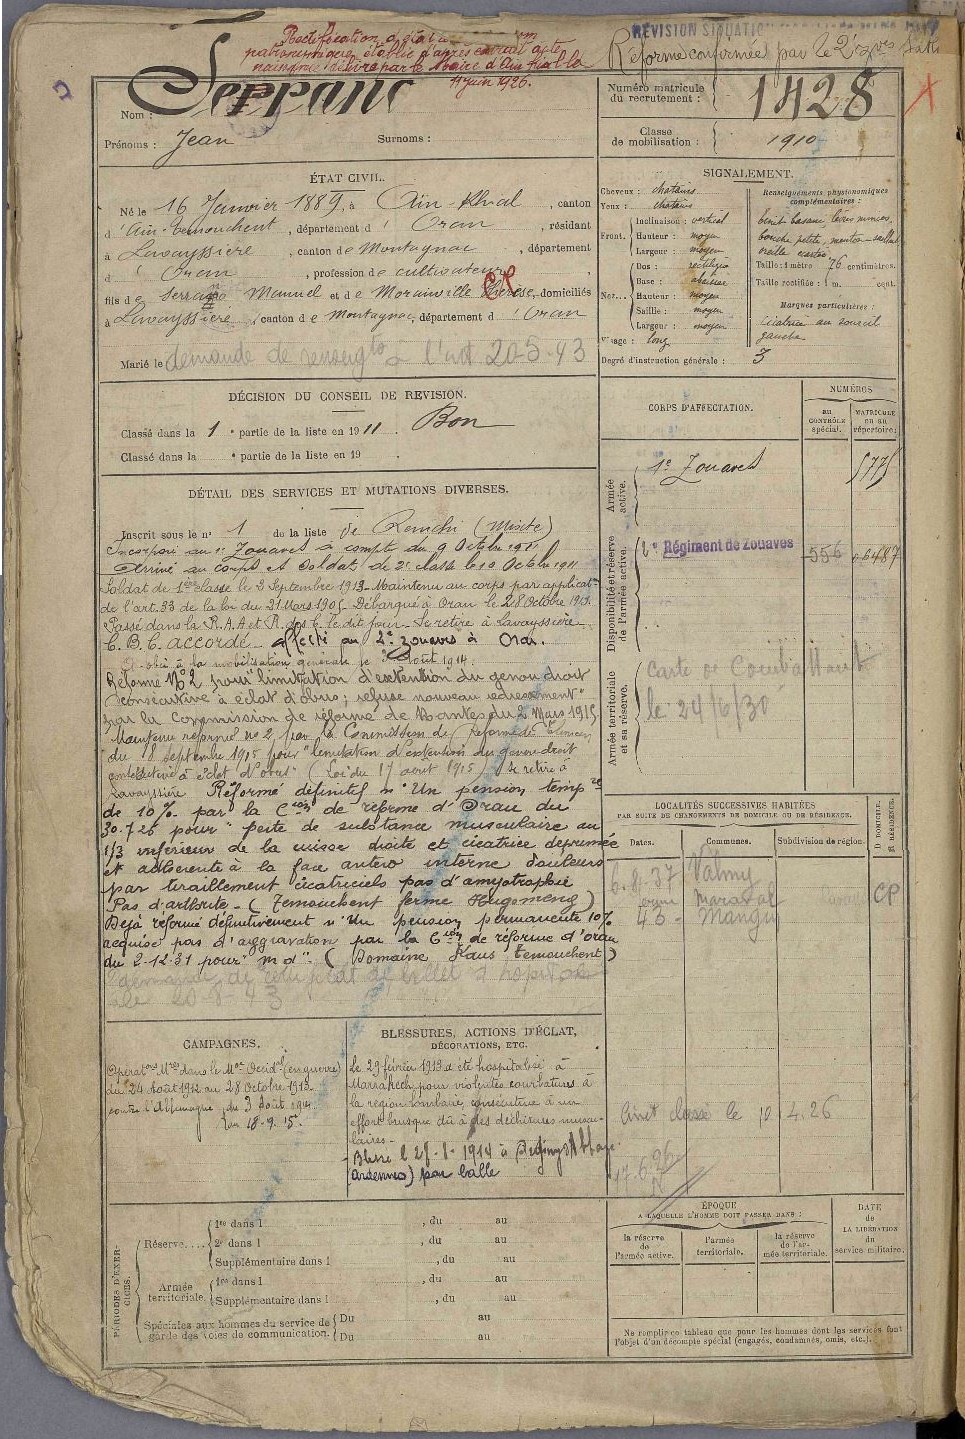 Rectification d'état
patronymique établie d'après extrait acte
naissance délivré par le Maire d'Aïn Kial le
4 juin 1926.
REVISION SITUATIO
Réforme confirmée par le 2e
Nom : Serrano
Prénoms : Jean Surnoms :
Numéro matricule
du recrutement : 1428
Classe
de mobilisation : 1910
ÉTAT CIVIL.
Né le 16 Janvier 1889, à Aïn-Khial, canton
d'Aïn-Temouchent, département d'Oran, résidant
à Lavayssière, canton de Montagnac, département
d'Oran, profession de cultivateur,
fils de Serrano Manuel et de Morainville Thérèse, domiciliés
à Lavayssière, canton de Montagnac, département d'Oran
CP
Marié le
demande de renseigts 20-5-43
SIGNALEMENT.
Cheveux : chatains
Yeux : chatains
Front. Inclinaison : vertical
Hauteur : moyen
Largeur : moyen
Nez... Dos : rectiligne
Base : abaissée
Hauteur : moyen
Saillie : moyen
Largeur : moyen
Visage : long
Renseignements physionomiques
complémentaires :
teint basané, lèvres minces,
bouche petite, menton saillant
Taille : 1 mètre 76 centimètres.
Taille rectifiée : 1 m. cent.
Marques particulières :
Cicatrice au sourcil
gauche
Degré d'instruction générale : 3
DÉCISION DU CONSEIL DE REVISION.
Classé dans la 1e partie de la liste en 1911. Bon
Classé dans la e partie de la liste en 19 .
CORPS D'AFFECTATION.
NUMÉROS
AU CONTRÔLE spécial.
MATRICULE ou au répertoire.
Armée active.
1e Zouaves
5775
Disponibilité et réserve de l'armée active.
2e Régiment de Zouaves
556 06487
Armée territoriale et sa réserve.
Carte de Combattant
le 24/6/30
DÉTAIL DES SERVICES ET MUTATIONS DIVERSES.
Inscrit sous le n° 1 de la liste de Remchi (Mixte)
Incorporé au 1er Zouaves à compter du 9 Octobre 1911
Arrivé au corps et Soldat de 2e classe le 10 Octobre 1911
Soldat de 1ère classe le 2 Septembre 1913. Maintenu au corps par applicat°
de l'art. 33 de la loi du 21 Mars 1905. Débarqué à Oran le 28 Octobre 1913.
Passé dans la R.A.A et R. dos C. le dit jour. Se retire à Lavayssière
C.B.C. accordé. Affecté au 2e Zouaves à Oran.
à la mobilisation générale le Août 1914.
Réformé N°2 pour limitation d'extention du genou droit
consécutive à éclat d'obus; refuse nouveau redressement
par la Commission de réforme de Nantes du 2 Mars 1915
Maintenu réformé no 2 par la Commission de Réforme de Tlemcen
du 18 septembre 1915 pour "limitation d'extention du genou droit
consécutive à éclat d'obus" (Loi du 17 août 1915) Se retire à
Lavayssière Réformé définitif n° 1 Un pension tempre
de 10% par la Cion de réforme d'Oran du
30.7.26 pour "perte de substance musculaire au
1/3 inférieur de la cuisse droite et cicatrice déprimée
et adhérente à la face antero interne douleurs
par tiraillement cicatriciels pas d'amyotrophie
Pas d'arthrite. (Temouchent ferme Hugomenq)
Déjà réformé définitivement n° Un pension permanente 10%
acquise pas d'aggravation par la Cion de réforme d'Oran
du 2-12-31 pour "m d". (Domaine Kaus Temouchent)
LOCALITÉS SUCCESSIVES HABITÉES
PAR SUITE DE CHANGEMENTS DE DOMICILE OU DE RÉSIDENCE.
Dates. Communes. Subdivision de région. D DOMICILE. R RÉSIDENCE.
6.8.37 Valmy
Maraval
43 - Mangin
CP
CAMPAGNES.
Opérat°ns Mres dans le Mroc Occidal (en guerre)
du 24 Août 1912 au 28 Octobre 1913.
contre l'Allemagne du 3 Août 1914
au 18-9-15.
BLESSURES, ACTIONS D'ÉCLAT,
DÉCORATIONS, ETC.
Le 29 février 1913 a été hospitalisé à
Marrakech pour violentes courbatures à
la région lombaire, consécutive à un
effort brusque dû à des déchirures muscu-
laires.
Blessé le 28-8-1914 à Signy l'Abbaye
(Ardennes) par balle
classé le 10 4.26
17.6.26
PÉRIODES D'EXERCICES.
Réserve.... 1re dans l , du au
2e dans l , du au
Supplémentaire dans l , du au
Armée territoriale. 1re dans l , du au
Supplémentaire dans l , du au
Spéciales aux hommes du service de garde des voies de communication. Du au
Du au
ÉPOQUE
A LAQUELLE L'HOMME DOIT PASSER DANS :
la réserve de l'armée active.
l'armée territoriale.
la réserve de l'armée territoriale.
DATE
de
LA LIBÉRATION
du
service militaire.
Ne remplir ce tableau que pour les hommes dont les services font
l'objet d'un décompte spécial (engagés, condamnés, omis, etc.).